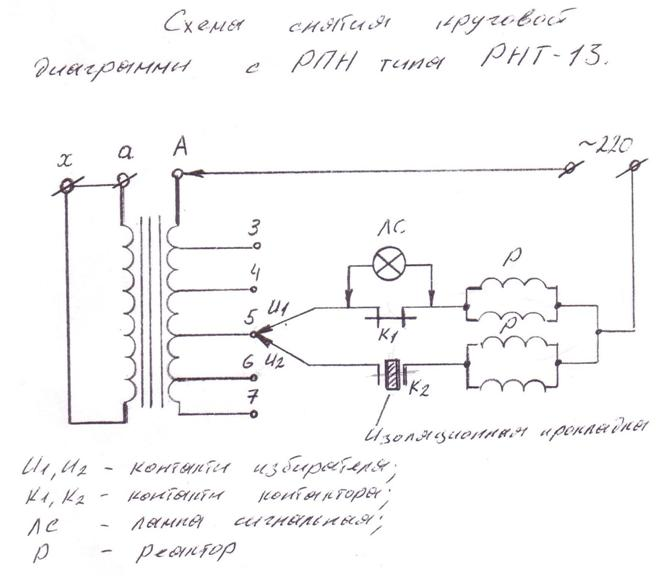 Схема снятия круговой
диаграмми с РПН типа РНТ-13.
х а А ~220
3
ЛС
4
Р
5 И1 К1
Р
6 И2
7 К2
Изоляционная прокладка
И1, И2 - контакти избирателя;
К1, К2 - контакти контактора;
ЛС - лампа сигнальная;
Р - реактор